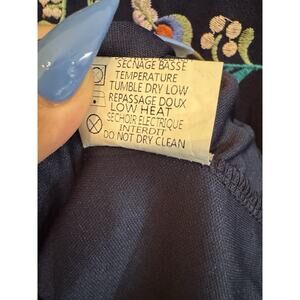 SECHAGE BASSE
TEMPERATURE
TUMBLE DRY LOW
REPASSAGE DOUX
LOW HEAT
SECHOIR ELECTRIQUE
INTERDIT
DO NOT DRY CLEAN